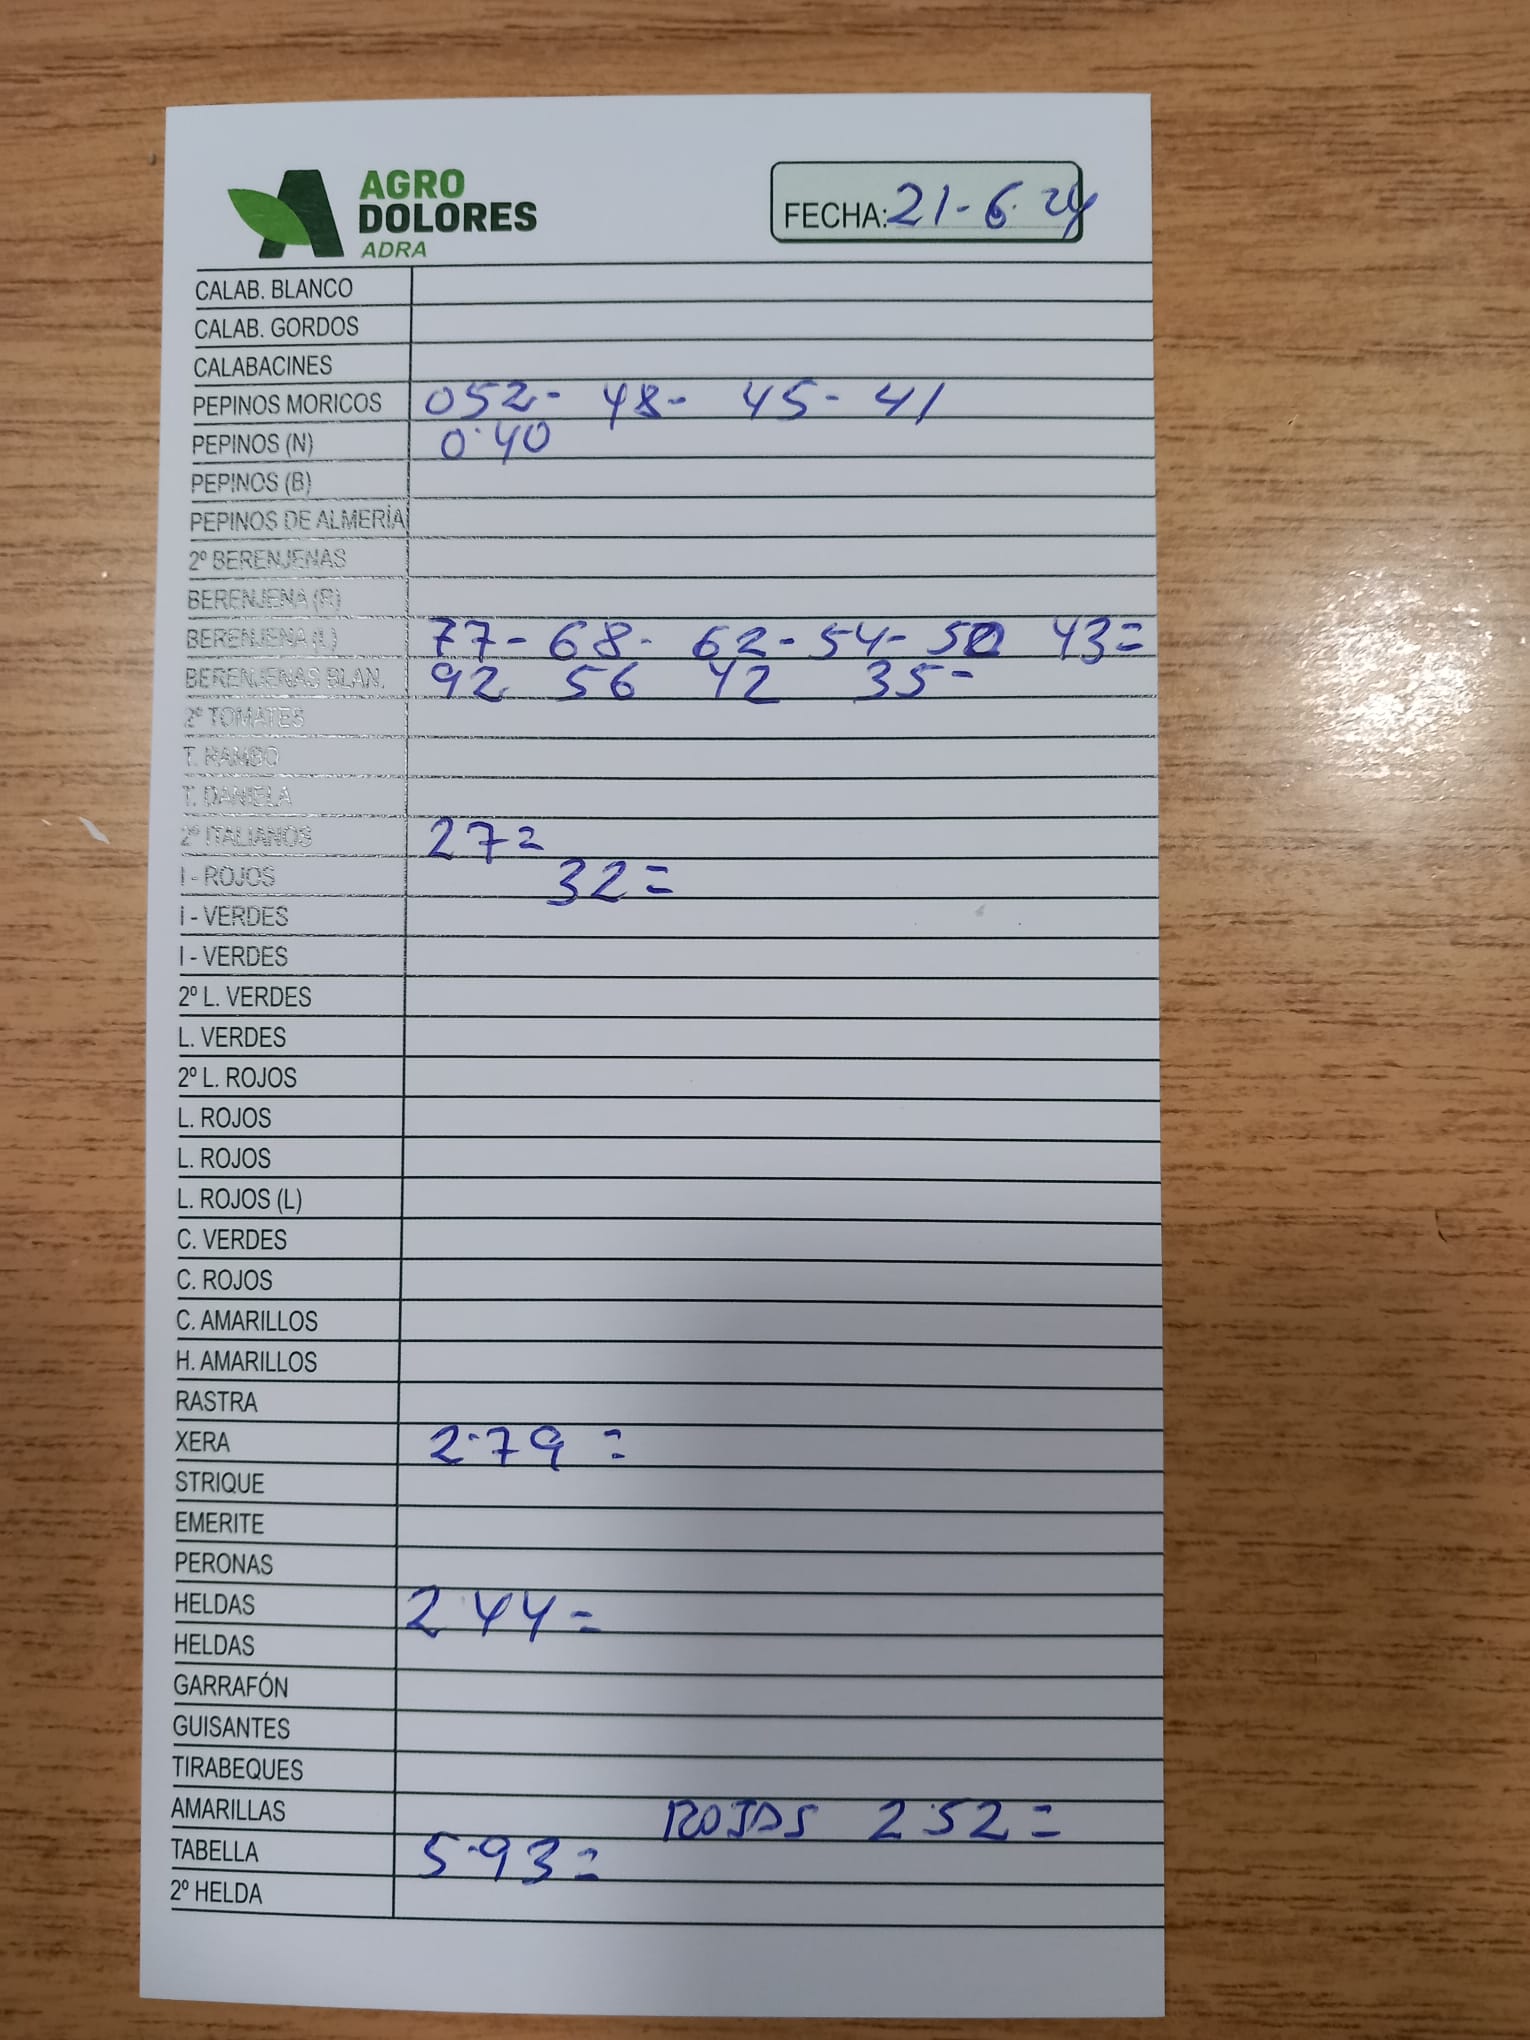 AGRO
DOLORES
ADRA
FECHA: 21-6-24
CALAB. BLANCO
CALAB. GORDOS
CALABACINES
PEPINOS MORICOS 052- 48- 45- 41
PEPINOS (N) 0'40
PEPINOS (B)
PEPINOS DE ALMERÍA
2º BERENJENAS
BERENJENA (R)
BERENJENA (L) 77- 68- 62- 54- 50 43=
BERENJENAS BLAN. 92 56 42 35-
2º TOMATES
T. RAMBO
T. DANIELA
2º ITALIANOS 27=
I - ROJOS 32=
I - VERDES
I - VERDES
2º L. VERDES
L. VERDES
2º L. ROJOS
L. ROJOS
L. ROJOS
L. ROJOS (L)
C. VERDES
C. ROJOS
C. AMARILLOS
H. AMARILLOS
RASTRA
XERA 2'79 =
STRIQUE
EMERITE
PERONAS
HELDAS 2'44=
HELDAS
GARRAFÓN
GUISANTES
TIRABEQUES
AMARILLAS ROJAS 2'52=
TABELLA 5'93=
2º HELDA